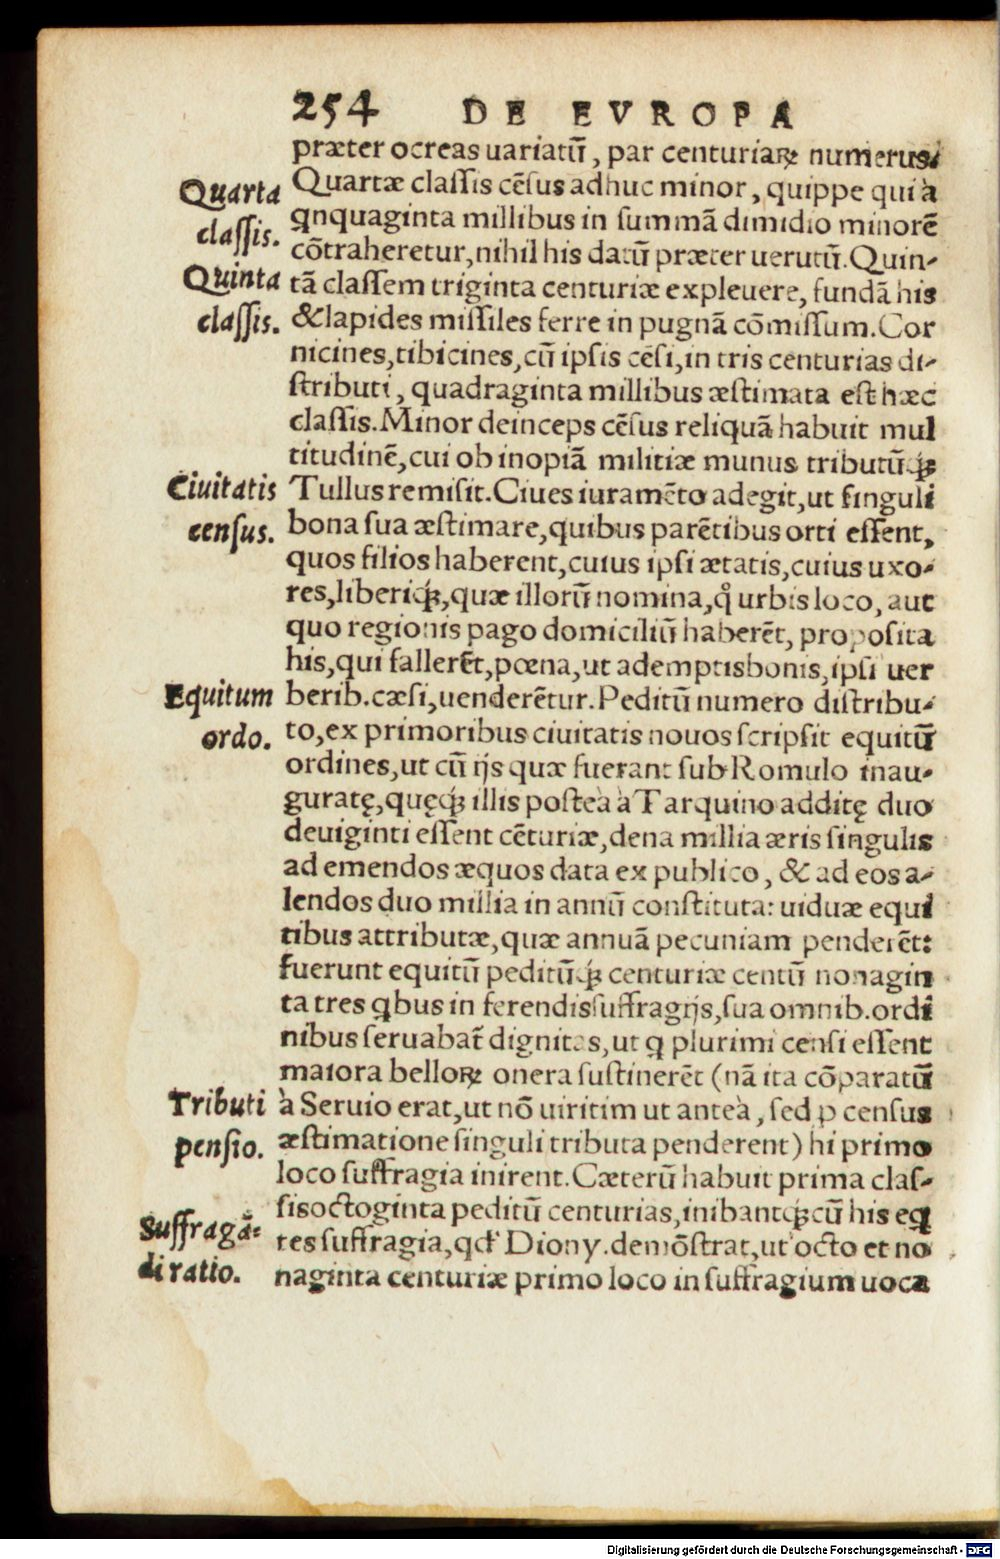 254 DE EVROPA
præter ocreas uariatū, par centuriaꝝ numerus.
Quartæ classis cēsus adhuc minor, quippe qui à
Quarta
qnquaginta millibus in summā dimidio minorē
classis.
cōtraheretur, nihil his datū præter uerutū. Quin-
Quinta
tā classem triginta centuriæ expleuere, fundā his
classis.
& lapides missiles ferre in pugnā cōmissum. Cor
nicines, tibicines, cū ipsis cēsi, in tris centurias di-
stributi, quadraginta millibus æstimata est hæc
classis. Minor deinceps cēsus reliquā habuit mul
titudinē, cui ob inopiā militiæ munus tributūq́ꝫ
Ciuitatis
Tullus remisit. Ciues iuramēto adegit, ut singuli
census.
bona sua æstimare, quibus parētibus orti essent,
quos filios haberent, cuius ipsi ætatis, cuius uxo-
res, liberiq́ꝫ, quæ illorū nomina, qͦ urbis loco, aut
quo regionis pago domiciliū haberēt, proposita
his, qui fallerēt, pœna, ut ademptis bonis, ipsi uer
Equitum
berib. cæsi, uenderētur. Peditū numero distribu-
ordo.
to, ex primoribus ciuitatis nouos scripsit equitū
ordines, ut cū ijs quæ fuerant sub Romulo inau-
guratę, quęq́ꝫ illis posteà à Tarquino additę duo
deuiginti essent cēturiæ, dena millia æris singulis
ad emendos æquos data ex publico, & ad eos a-
lendos duo millia in annū constituta: uiduæ equi
tibus attributæ, quæ annuā pecuniam penderēt:
fuerunt equitū peditūq́ꝫ centuriæ centū nonagin
ta tres qbus in ferendis suffragijs, sua omnib. ordi
nibus seruabat̄ dignitas, ut q plurimi censi essent
maiora belloꝝ onera sustinerēt (nā ita cōparatū
Tributi
à Seruio erat, ut nō uiritim ut anteà, sed ꝑ census
pensio.
æstimatione singuli tributa penderent) hi primo
loco suffragia inirent. Cæterū habuit prima clas-
sis octoginta peditū centurias, inibantq́ꝫ cū his eq
Suffragā-
tes suffragia, qđ Diony. demōstrat, ut octo et no
di ratio.
naginta centuriæ primo loco in suffragium uoca
Digitalisierung gefördert durch die Deutsche Forschungsgemeinschaft - DFG